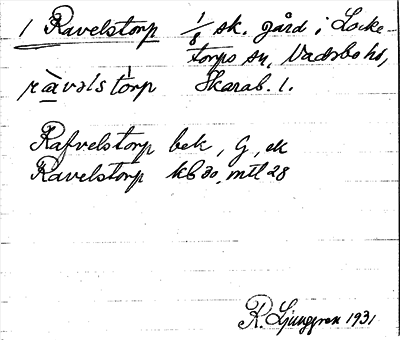 1 Ravelstorp 1/8 sk. gård i Locke-
torps sn, Vadsbo hd,
ràvəlstórp Skarab. l.
Rafvelstorp bek, G, ek
Ravelstorp kb 30, mtl 28
R. Ljunggren 1931